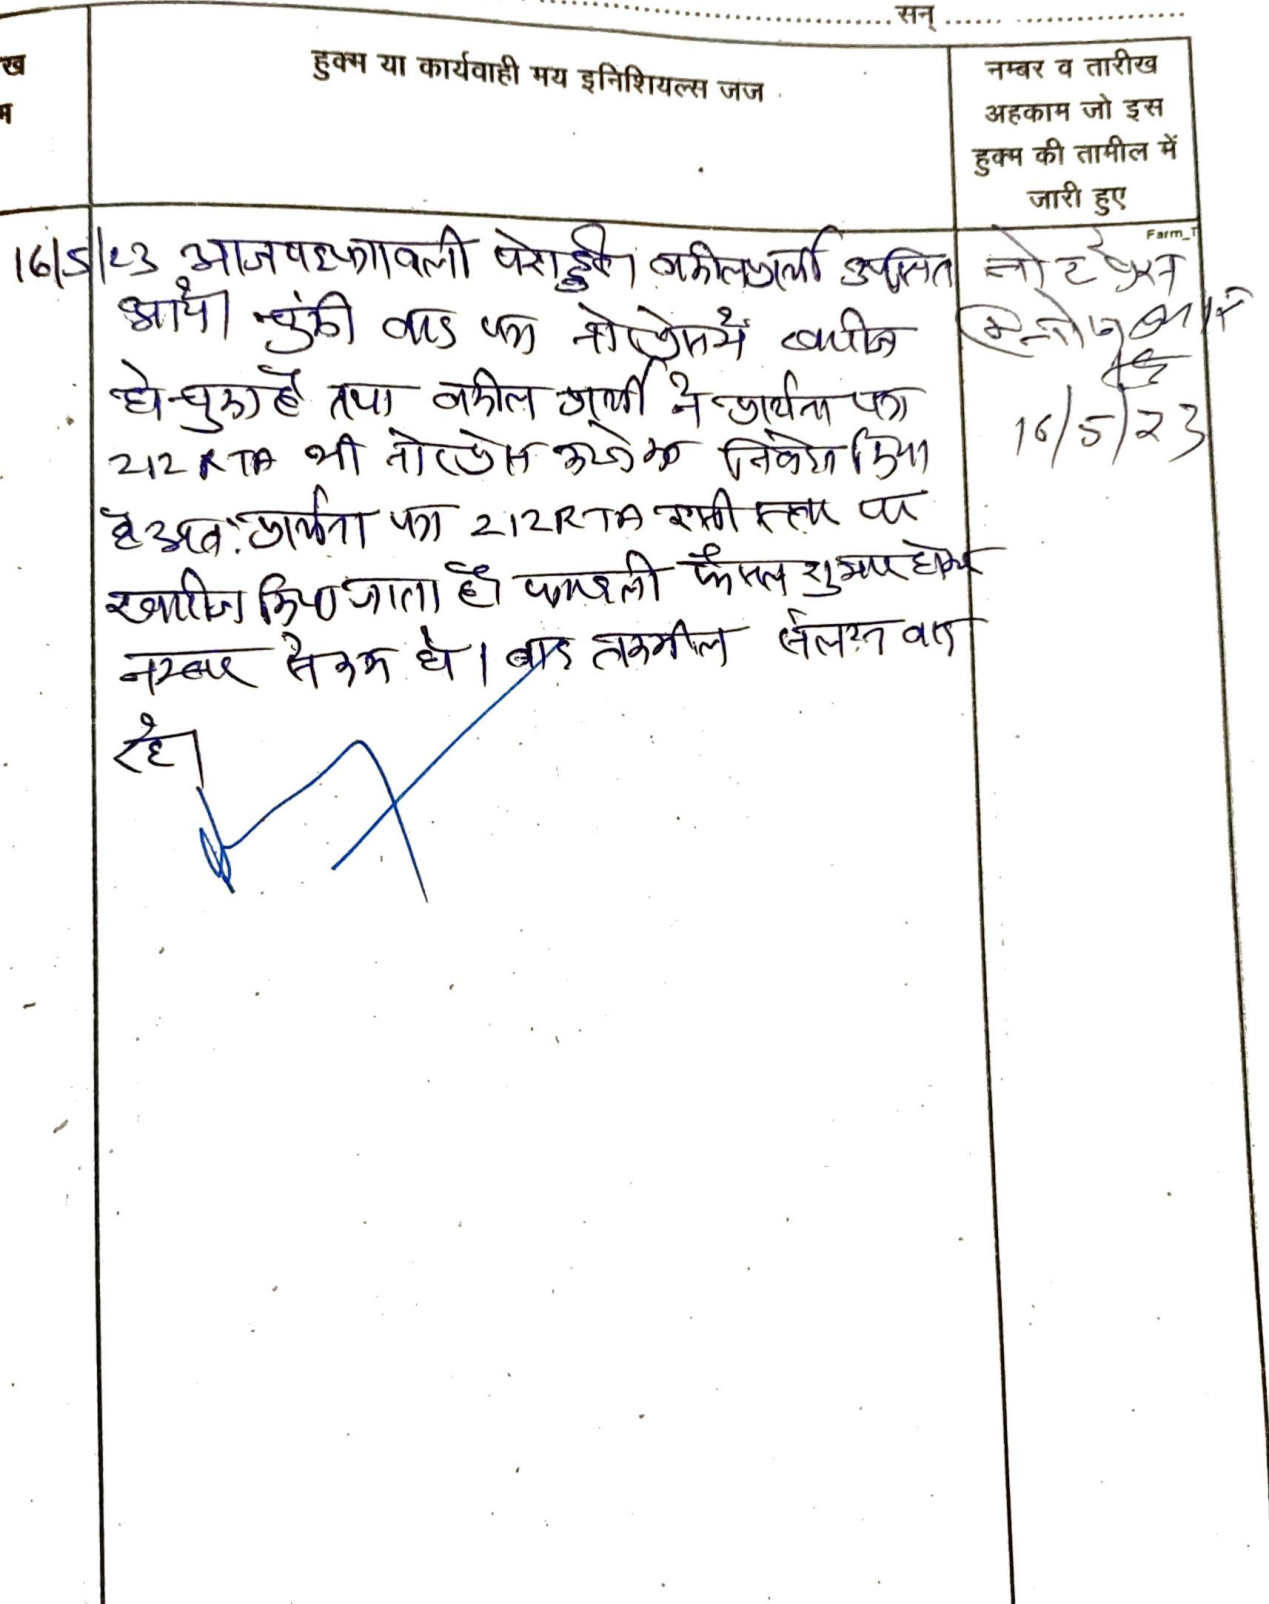 सन्
ख
म
हुक्म या कार्यवाही मय इनिशियल्स जज
नम्बर व तारीख
अहकाम जो इस
हुक्म की तामील में
जारी हुए
Farm_T
16/5/23 आज पत्रावली पेश हुई। वकील प्रार्थी उपस्थित
आये। चुंकी वाद पत्र नोटप्रेस में खारीज
हो चुका है तथा वकील प्रार्थी ने प्रार्थना पत्र
212 RTA भी नोटप्रेस करने का निवेदन किया
है अतः प्रार्थना पत्र 212 RTA इसी स्तर पर
खारीज किया जाता है। पत्रावली फैसल शुमार होकर
नम्बर से कम हो। बाद तकमील संलग्न वाद
रहे।
नोट प्रेस
16/5/23